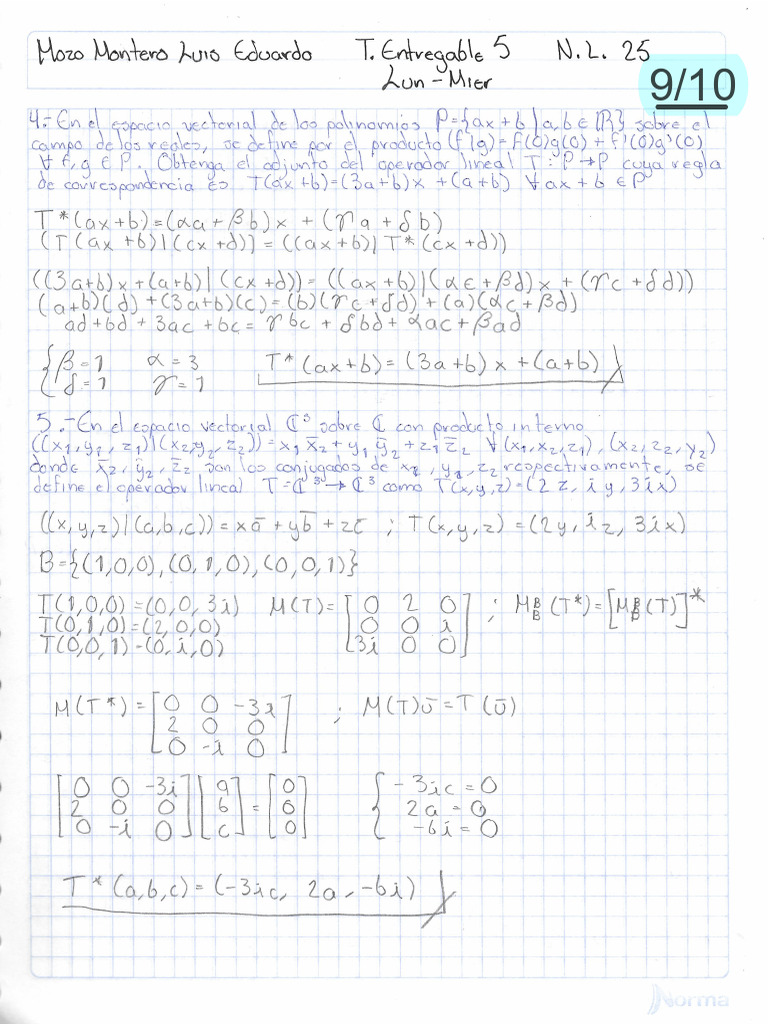 Mozo Montero Luis Eduardo T. Entregable 5 N.L. 25
Lun-Mier
9/10
4.- En el espacio vectorial de los polinomios P={ax+b|a,b∈ℝ} sobre el
campo de los reales, se define por el producto (f|g)=f(0)g(0)+f'(0)g'(0)
∀ f,g ∈ P. Obtenga el adjunto del operador lineal T: P→P cuya regla
de correspondencia es T(ax+b)=(3a+b)x+(a+b) ∀ax+b ∈ P
T*(ax+b)=(αa+βb)x+(γa+δb)
(T(ax+b)|(cx+d))=((ax+b)|T*(cx+d))
((3a+b)x+(a+b)|(cx+d))=((ax+b)|(αc+βd)x+(γc+δd))
(a+b)(d)+(3a+b)(c)=(b)(γc+δd)+(a)(αc+βd)
ad+bd+3ac+bc=γbc+δbd+αac+βad
{β=1 α=3 T*(ax+b)=(3a+b)x+(a+b)
δ=1 γ=1
5.-En el espacio vectorial ℂ³ sobre ℂ con producto interno
((x₁,y₂,z₁)|(x₂,y₂,z₂))=x₁x̄₂+y₁ȳ₂+z₁z̄₂ ∀(x₁,x₂,z₁),(x₂,z₂,y₂)
donde x̄₂,ȳ₂,z̄₂ son los conjugados de x₂,y₂,z₂ respectivamente, se
define el operador lineal T=ℂ³→ℂ³ como T(x,y,z)=(2z,iy,3ix)
((x,y,z)|(a,b,c))=xā+yb̄+zc̄ ; T(x,y,z)=(2y,iz,3ix)
B={(1,0,0),(0,1,0),(0,0,1)}
T(1,0,0)=(0,0,3i) M(T)=[0 2 0 ; M_B^B(T*)=[M_B^B(T)]*
T(0,1,0)=(2,0,0) 0 0 i
T(0,0,1)=(0,i,0) 3i 0 0]
M(T*)=[0 0 -3i ; M(T)ū=T(ū)
2 0 0
0 -i 0]
[0 0 -3i][a]=[0] {-3ic=0
2 0 0 b 0 2a=0
0 -i 0 c 0 -bi=0
T*(a,b,c)=(-3ic, 2a,-bi)
Norma